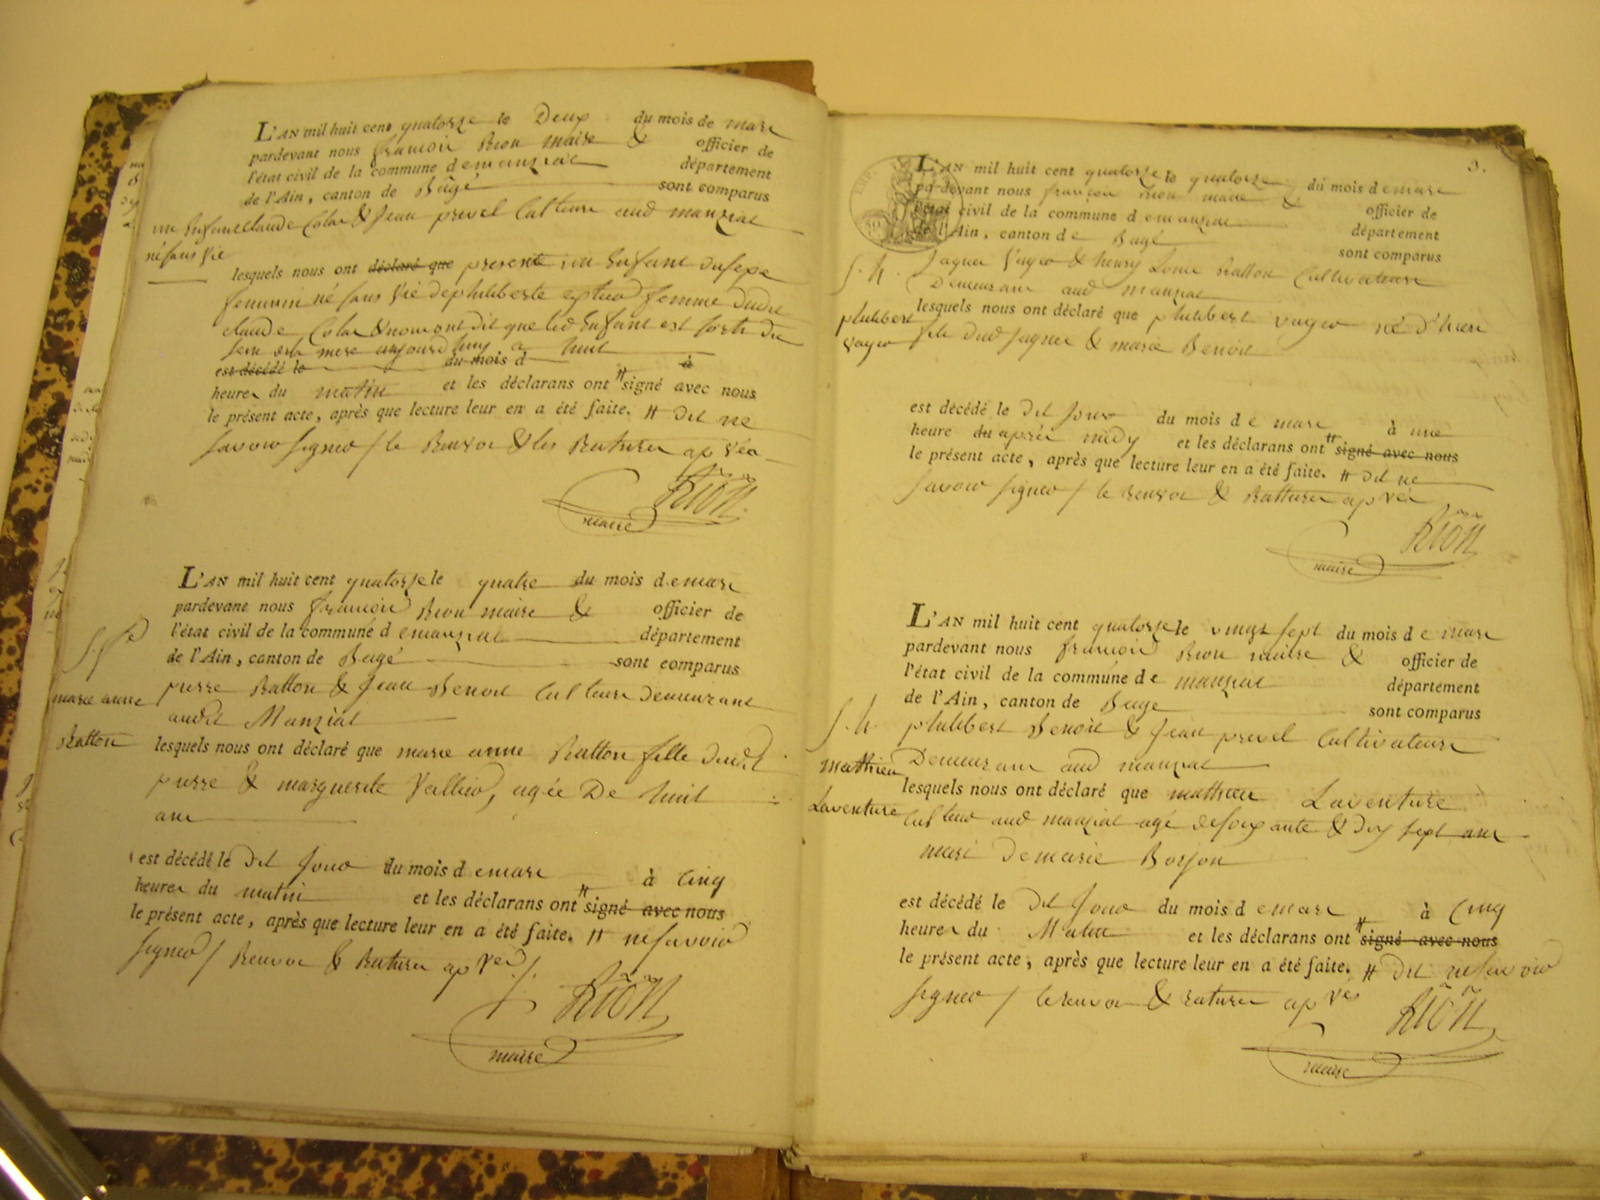 L'AN mil huit cent quatorze le Deux du mois de mars
pardevant nous françois Rion maire & officier de
l'état civil de la commune demanziat département
de l'Ain, canton de Bâgé sont comparus
un Enfant
né sans vie
claude Colas & Jean prevel Culteurs aud manziat
lesquels nous ont déclaré que presenté un Enfant du sexe
feminin né sans vie dephiliberte femme dudit
claude Colas & nous ont dit que led Enfant est sorti du
sein de la mere aujourd'huy a huit
est décédé le du mois d à
heures du matin et les déclarans ont # signé avec nous
le présent acte, après que lecture leur en a été faite. # dit ne
savoir signer / le Renvoi & les Ratures apvés
Rion
maire
L'AN mil huit cent quatorze le quatre du mois demars
pardevant nous françois Rion maire & officier de
l'état civil de la commune demanziat département
de l'Ain, canton de Bagé sont comparus
marie anne
Ratton
pierre Ratton & Jean Benoit Culteurs demeurant
audit Manziat
lesquels nous ont déclaré que marie anne Ratton fille dudit
pierre & marguerite agée De huit
ans
est décédé le dit jour du mois demars à cinq
heures du matin et les déclarans ont # signé avec nous
le présent acte, après que lecture leur en a été faite. # ne savoir
signer / Renvoi & Ratures apvés
Rion
maire
3.
L'AN mil huit cent quatorze le quatorze du mois demars
pardevant nous françois Rion maire & officier de
l'état civil de la commune demanziat département
de l'Ain, canton de Bagé sont comparus
philibert
vayer
Jaques Vayer & henry Louis Ratton Cultivateurs
Demeurans aud manziat
lesquels nous ont déclaré que philibert vayer né d'hier
fils dud jaques & marie Benoit
est décédé le dit jour du mois de mars à une
heure du après midy et les déclarans ont # signé avec nous
le présent acte, après que lecture leur en a été faite. # dit ne
savoir signer / le Renvoi & Ratures apvés
Rion
maire
L'AN mil huit cent quatorze le vingt sept du mois de mars
pardevant nous françois Rion maire & officier de
l'état civil de la commune de manziat département
de l'Ain, canton de Bagé sont comparus
mathieu
Laventure
philibert Benoit & Jean prevel Cultivateurs
Demeurans aud manziat
lesquels nous ont déclaré que mathieu Laventure
Culteur aud manziat agé desoixante & dix sept ans
mari demarie Borjon
est décédé le dit jour du mois demars à cinq
heures du Matin et les déclarans ont # signé avec nous
le présent acte, après que lecture leur en a été faite. # dit nesavoir
signer / le renvoi & ratures apvés
Rion
maire